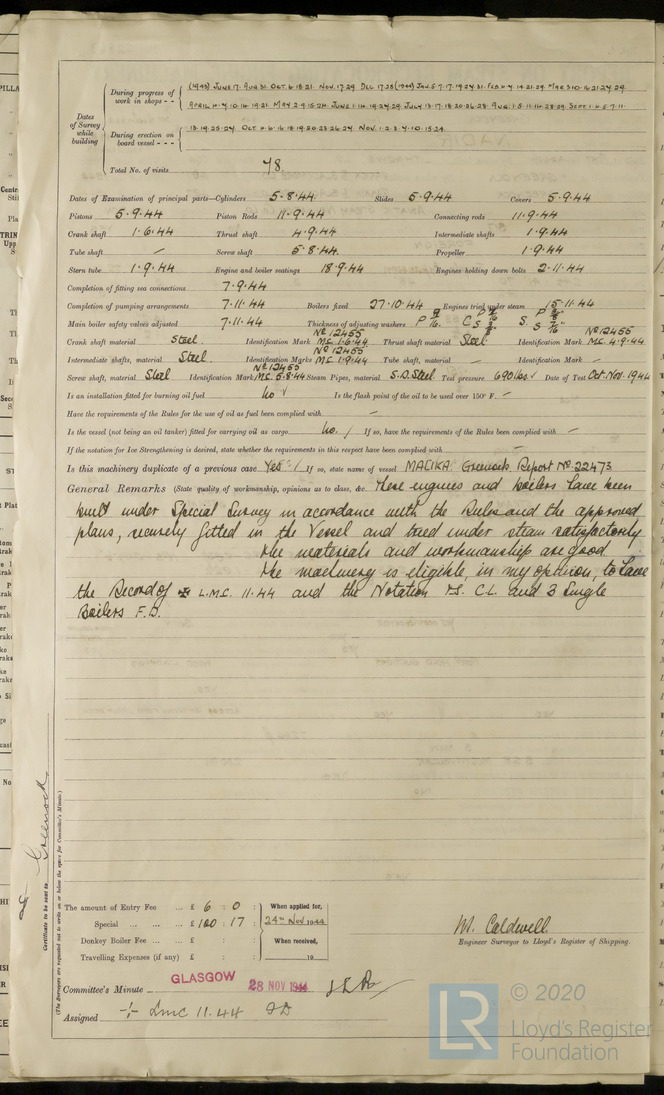 Dates of Survey while building
During progress of work in shops - -
(1943) JUNE 17. AUG 31. OCT. 6. 18. 21. NOV. 17. 29. DEC 17. 28 (1944) JAN. 5. 7. 17. 19. 24. 31. FEB 14. 21. 29. MAR 3. 10. 16. 21. 24. 29.
APRIL 4. 7. 10. 14. 19. 21. MAY 2. 9. 15. 24. JUNE 1. 14. 19. 24. 29. JULY 13. 17. 18. 20. 26. 28. AUG. 1. 5. 11. 14. 28. 29. SEPT. 1. 4. 5. 7. 11.
During erection on board vessel - - -
13. 19. 25. 27. OCT 4. 6. 16. 18. 19. 20. 23. 26. 27. NOV. 1. 2. 3. 7. 10. 15. 24.
Total No. of visits 78.
Dates of Examination of principal parts—Cylinders 5.8.44. Slides 5.9.44 Covers 5.9.44
Pistons 5.9.44 Piston Rods 11.9.44 Connecting rods 11.9.44
Crank shaft 1.6.44 Thrust shaft 4.9.44 Intermediate shafts 1.9.44
Tube shaft — Screw shaft 5.8.44. Propeller 1.9.44
Stern tube 1.9.44 Engine and boiler seatings 18.9.44 Engines holding down bolts 2.11.44
Completion of fitting sea connections 7.9.44
Completion of pumping arrangements 7.11.44 Boilers fixed 27.10.44 Engines tried under steam 15.11.44
Main boiler safety valves adjusted 7.11.44 Thickness of adjusting washers P C S
Crank shaft material Steel. Identification Mark Nº 12455 M.C. 1.6.44 Thrust shaft material Steel Identification Mark Nº 12455 M.C. 4.9.44
Intermediate shafts, material Steel. Identification Marks Nº 12455 M.C. 1.9.44 Tube shaft, material — Identification Mark —
Screw shaft, material Steel Identification Mark Nº 12455 M.C. 5.8.44 Steam Pipes, material S.D. Steel Test pressure 690 lbs ✓ Date of Test Oct. Nov. 1944
Is an installation fitted for burning oil fuel No ✓ Is the flash point of the oil to be used over 150° F. —
Have the requirements of the Rules for the use of oil as fuel been complied with —
Is the vessel (not being an oil tanker) fitted for carrying oil as cargo No. / If so, have the requirements of the Rules been complied with —
If the notation for Ice Strengthening is desired, state whether the requirements in this respect have been complied with —
Is this machinery duplicate of a previous case Yes / If so, state name of vessel MALIKA. Greenock. Report Nº 22473
General Remarks (State quality of workmanship, opinions as to class, &c. These engines and boilers have been
built under Special Survey in accordance with the Rules and the approved
plans, securely fitted in the Vessel and tried under steam satisfactorily
The materials and workmanship are good
The machinery is eligible, in my opinion, to have
the Record of ✠ L.M.C. 11.44 and the Notation TS. C.L. and 3 Single
Boilers F.D.
Certificate to be sent to Greenock
(The Surveyors are requested not to write on or below the space for Committee's Minute.)
The amount of Entry Fee ... £ 6 : 0 : When applied for,
Special ... ... ... £ 100 : 17 : 24th Nov 1944
Donkey Boiler Fee ... £ : : When received,
Travelling Expenses (if any) £ : : 19
M. Caldwell.
Engineer Surveyor to Lloyd's Register of Shipping.
Committee's Minute GLASGOW 28 NOV 1944
Assigned + Lmc 11.44 FD
LR
© 2020
Lloyd's Register
Foundation